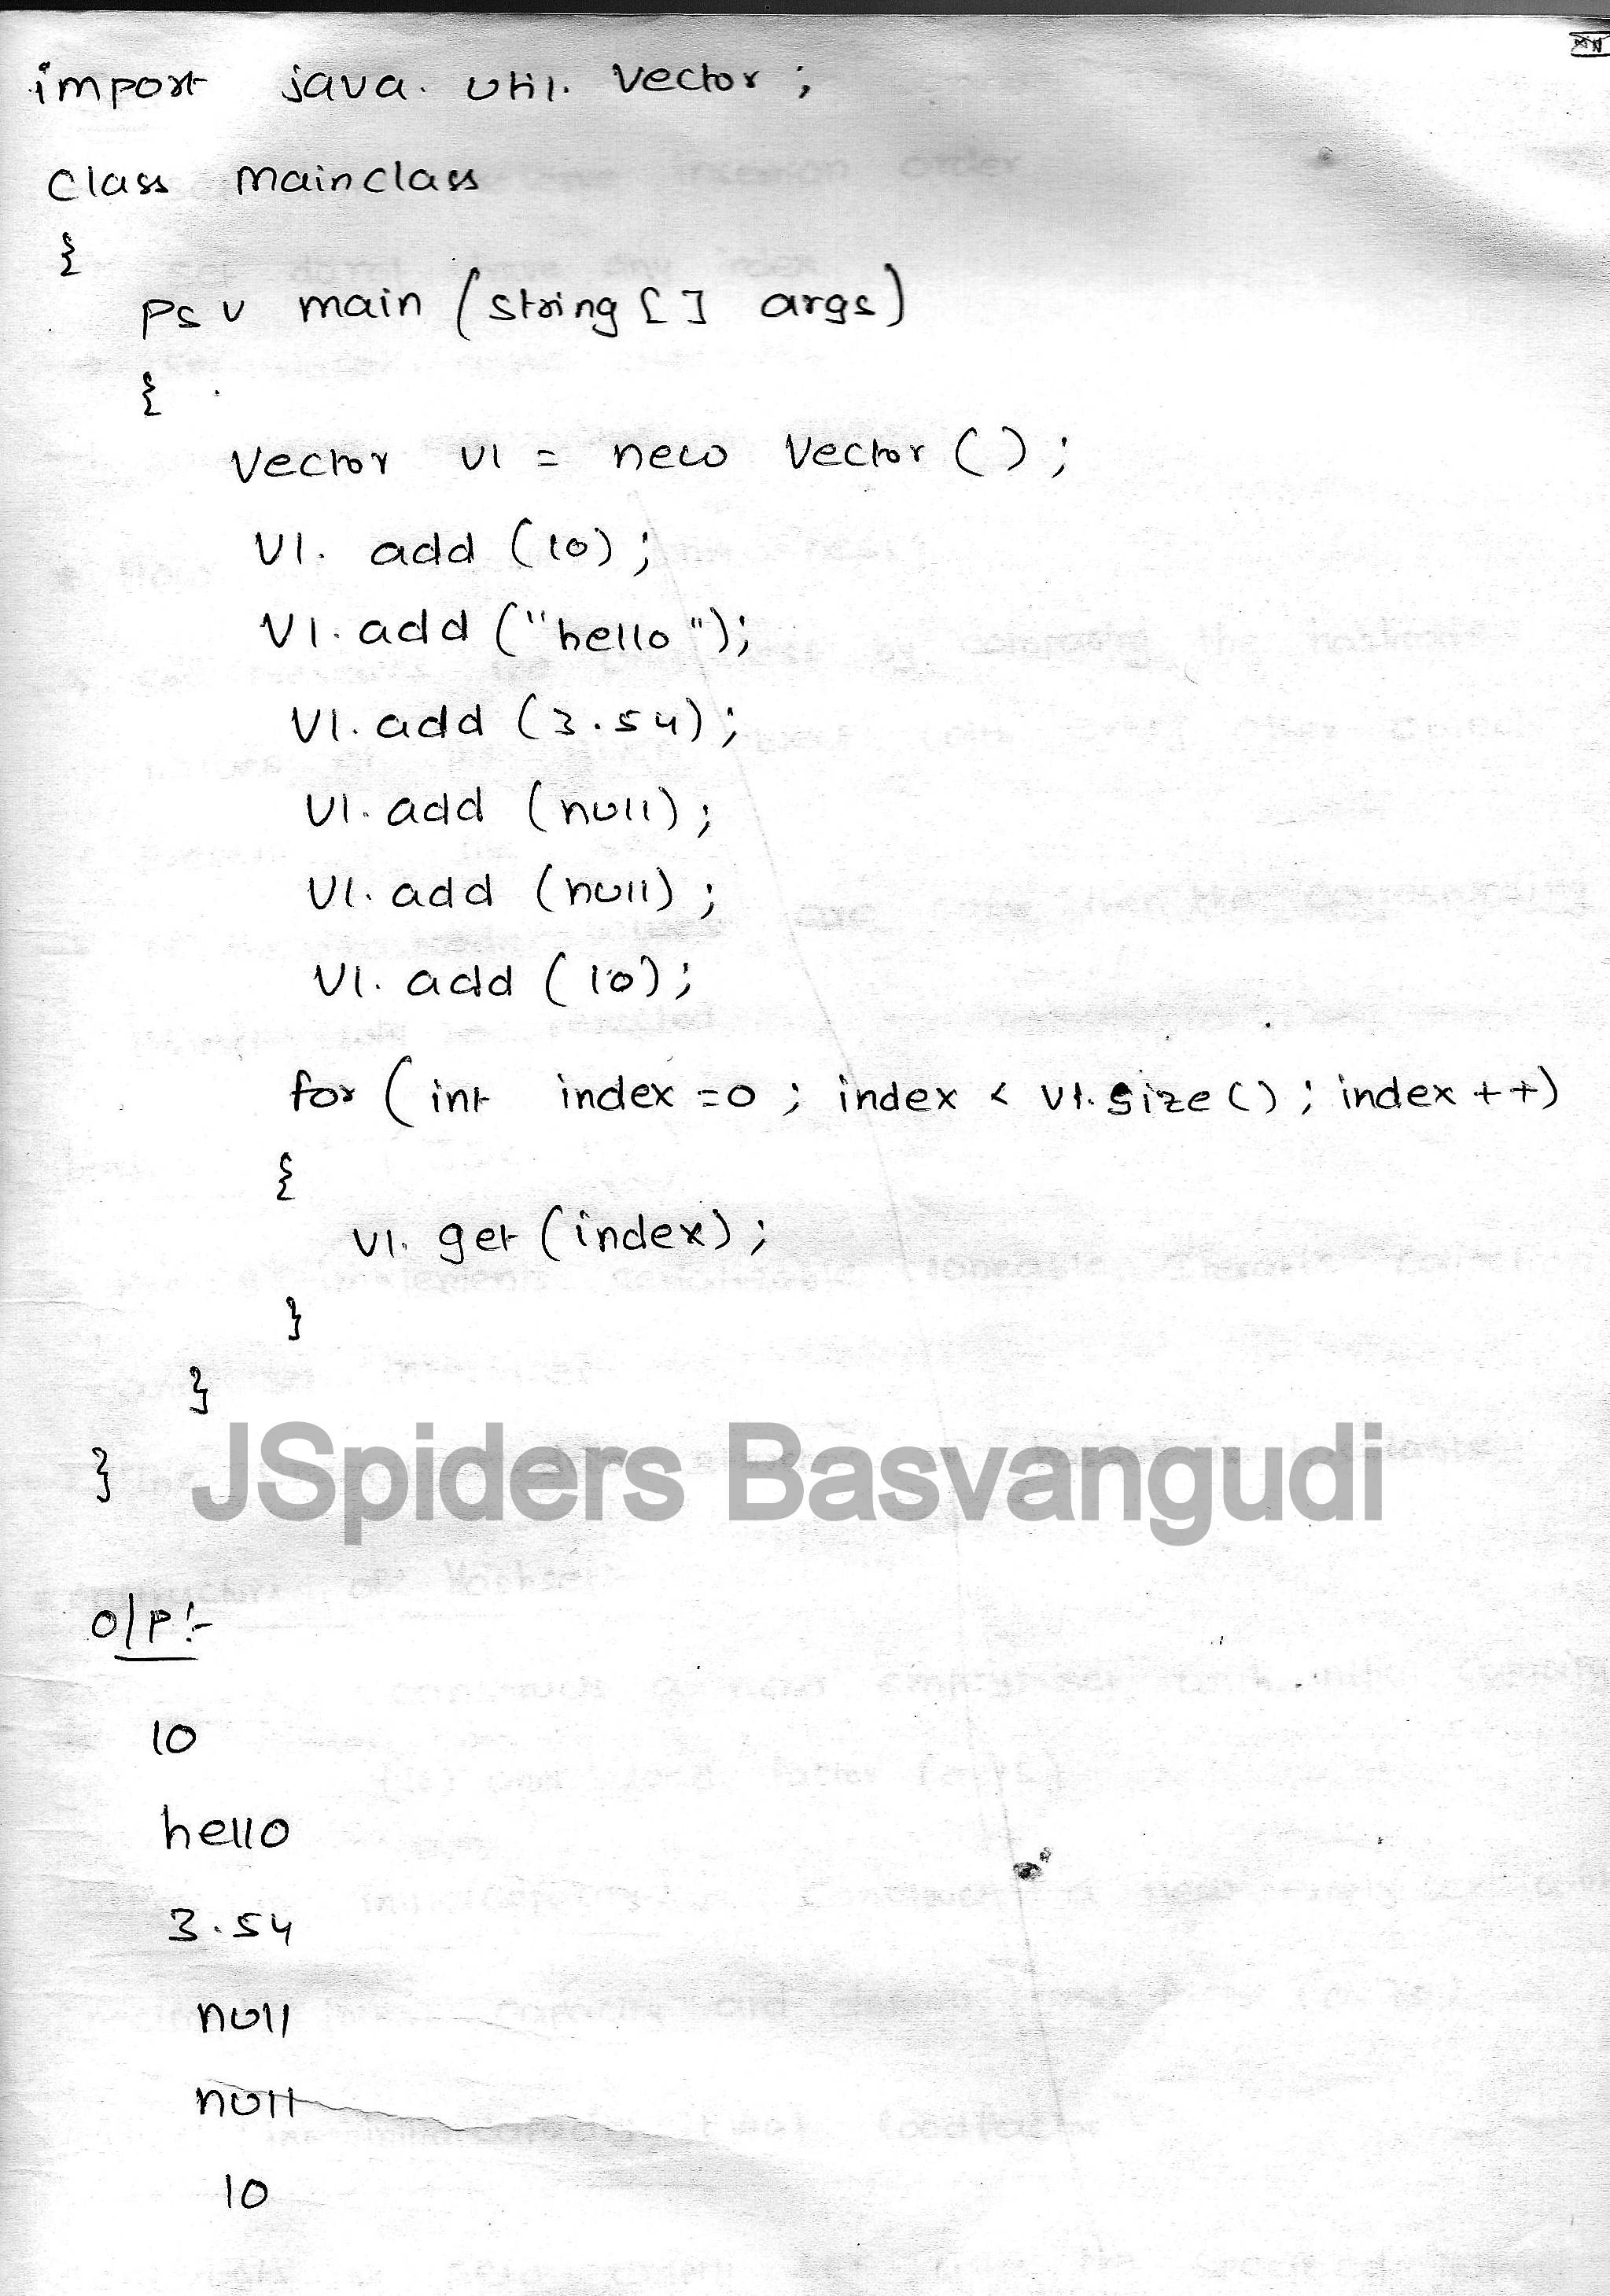 import java.util.Vector;
class mainclass
{
psv main (string [] args)
{
Vector v1 = new Vector ();
v1. add (10);
v1.add ("hello");
v1.add (3.54);
v1.add (null);
v1.add (null);
v1. add (10);
for ( int index =0 ; index < v1.size () ; index ++)
{
v1. get (index);
}
}
}
JSpiders Basvangudi
o/p:-
10
hello
3.54
null
null
10